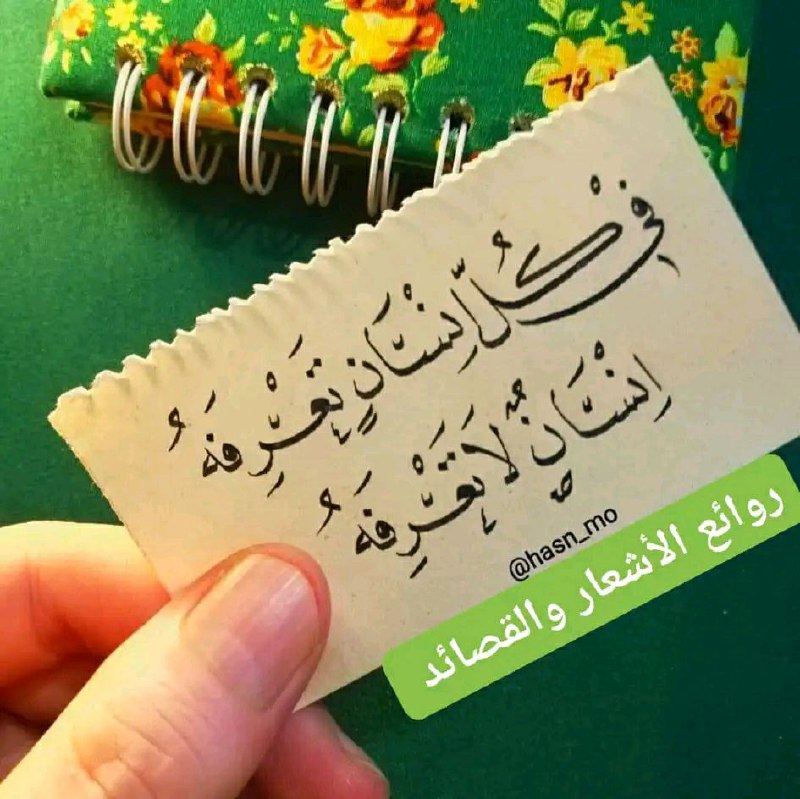 فِيْ كُلِّ اِنْسَانٍ تَعْرِفَهُ
اِنْسَانٌ لَا تَعْرِفَهُ
@hasn_mo
روائع الأشعار والقصائد